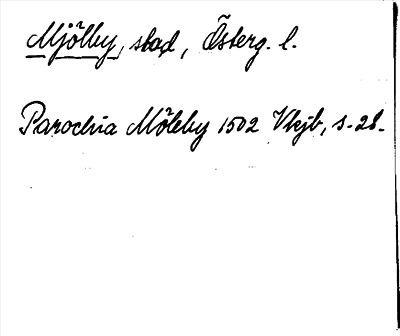 Mjölby, stad, Österg. l.
Parochia Möleby 1502 Vkjb, s. 28.